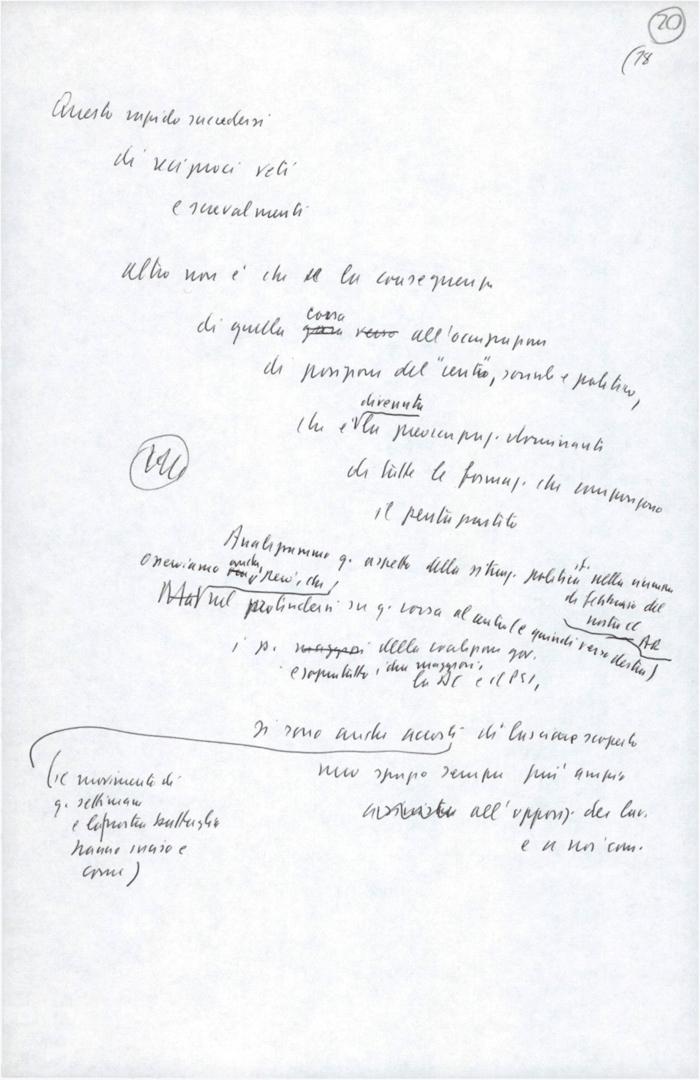 20
(18
Questo rapido succedersi
di reciproci veti
e scavalcamenti
altro non è che la conseguenza
di quella corsa gara verso all'occupazione
di posizioni del "centro", sociale e politico,
divenuta
che è la preoccupaz. dominante
di tutte le formaz. che compongono
il pentapartito
Analizzammo q. aspetto della situaz. politica nella riunione
di febbraio del
nostro CC
osserviamo anche però, che
Ma nel protendersi su q. corsa al centro (e quindi verso destra)
AR
i p. maggiori della coalizione gov.
e soprattutto i due maggiori,
la DC e il PSI,
si sono anche accorti di lasciare scoperto
uno spazio sempre più ampio
all'opposiz. dei lav.
e a noi com.
(il movimento di
q. settimane
e la nostra battaglia
hanno inciso e
come)